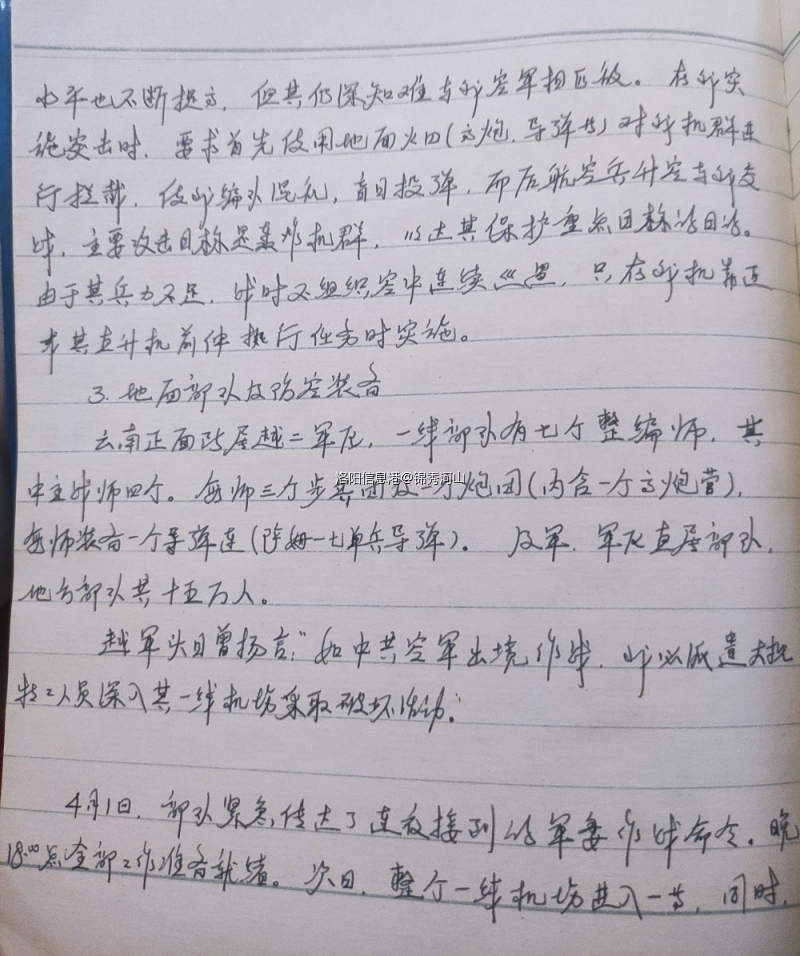 水平也不断提高，但其仍深知难与我空军相匹敌。在我实
施突击时，要求首先使用地面火口(高炮，导弹共)对我机群进
行拦截，使我编队混乱，盲目投弹，而后航空兵升空与我交
战，主要攻击目标是轰炸机群，以达其保护重点目标的目的。
由于其兵力不足，战时不组织空中连续巡逻，只在我机靠近
或其直升机前伸执行任务时实施。
3.地面部队及防空装备
云南正面防属越二军区，一线部队有七个整编师，其
中主战师四个。每师三个步兵团及一个炮团(内含一个高炮营)，
每师装备一个导弹连(萨姆一七单兵导弹)。及军、军区直属部队，
地方部队共十五万人。
越军头目曾扬言:"如中共空军出境作战，我必派遣大批
特工人员深入其一线机场采取破坏活动."
4月1日，部队紧急传达了连夜接到的军委作战命令。晚
18:00点全部工作准备就绪。次日，整个一线机场进入一等，同时，
洛阳信息港@锦秀河山